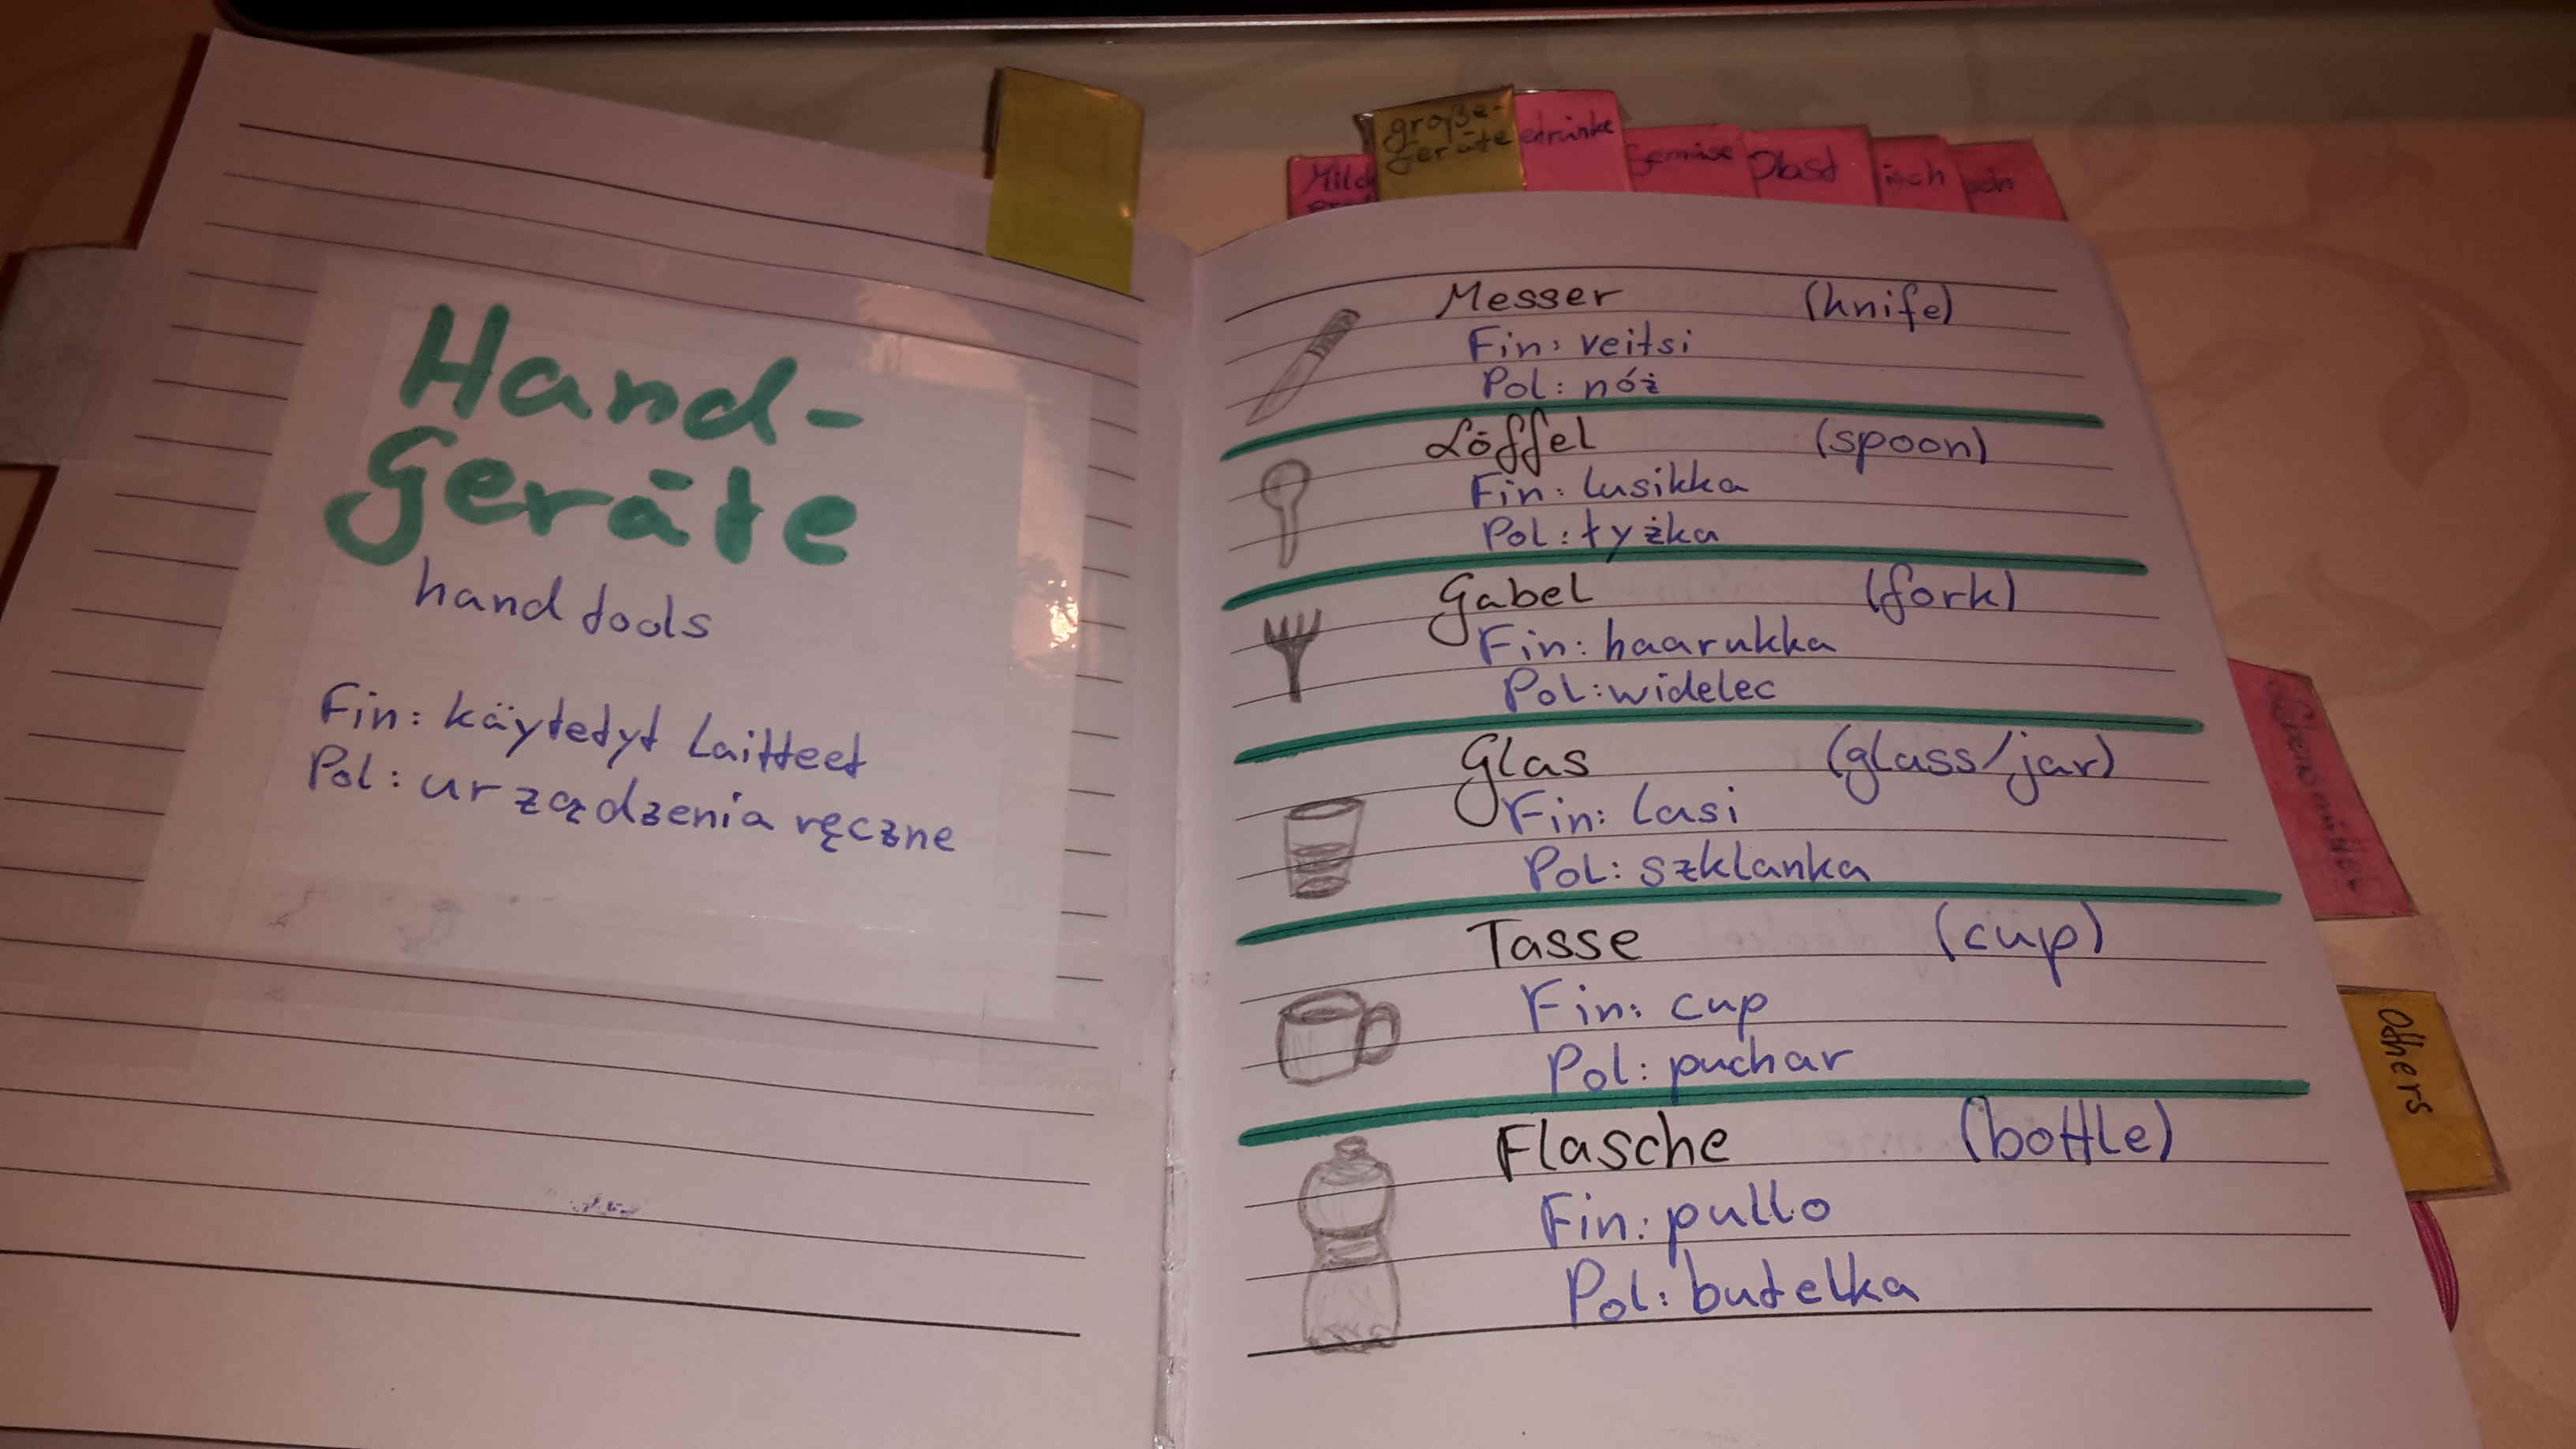 Hand-
Geräte
hand tools
Fin: käytetyt Laitteet
Pol: urządzenia ręczne
große-
Geräte
edränke
Gemüse
Obast
isch
Messer (knife)
Fin: veitsi
Pol: nóż
Löffel (spoon)
Fin: lusikka
Pol: łyżka
Gabel (fork)
Fin: haarukka
Pol: widelec
Glas (glass/jar)
Fin: Lasi
Pol: szklanka
Tasse (cup)
Fin: cup
Pol: puchar
Flasche (bottle)
Fin: pullo
Pol: butelka
Others